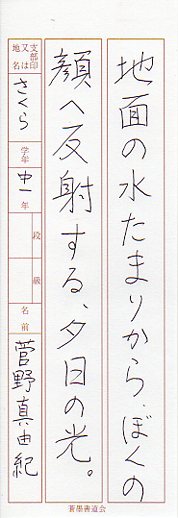 地面の水たまりから、ぼくの
顔へ反射する、夕日の光。
支部印又は地名 さくら 学年 中一年 段 級 名前 菅野真由紀
蒼墨書道会